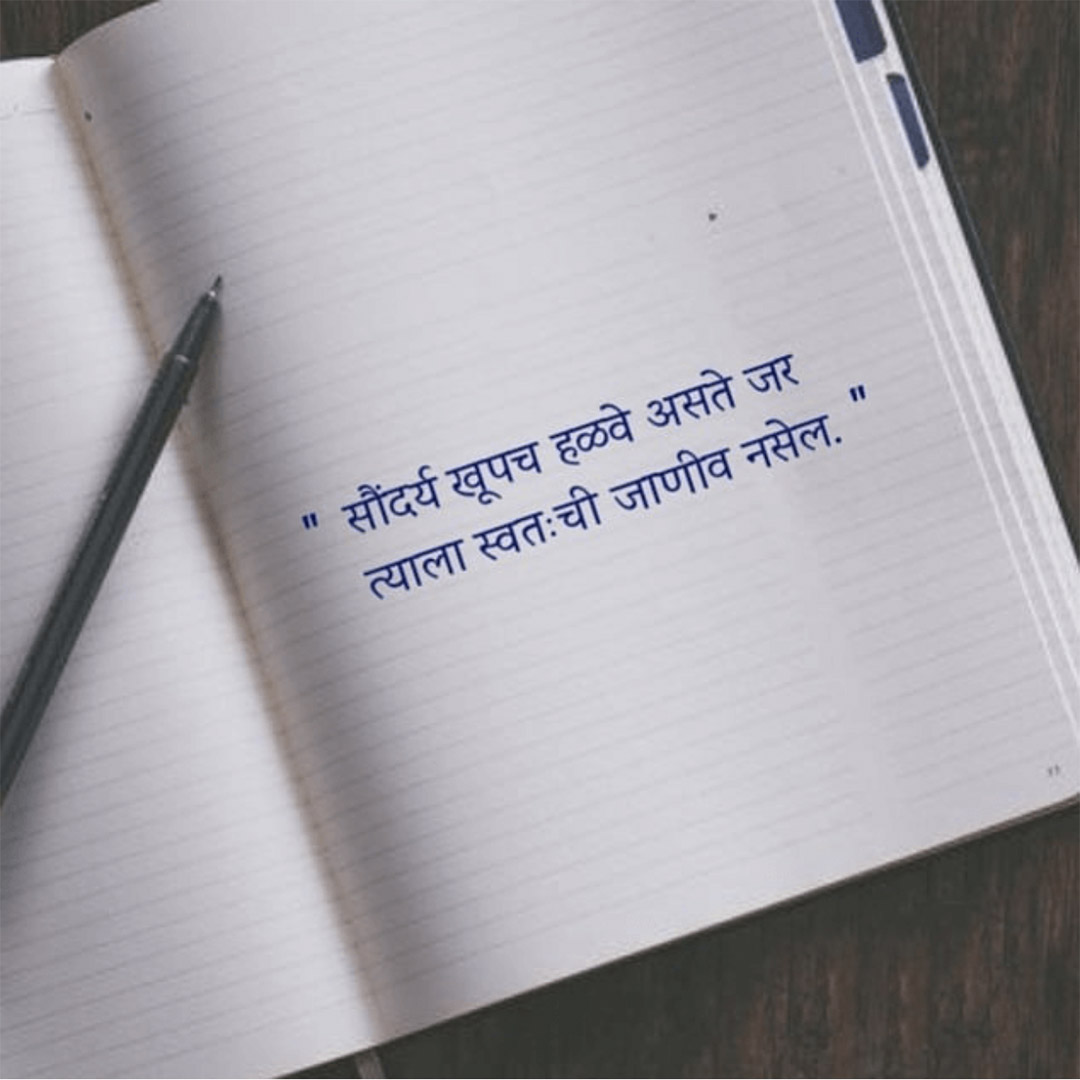 " सौंदर्य खूपच हळवे असते जर
त्याला स्वतःची जाणीव नसेल. "